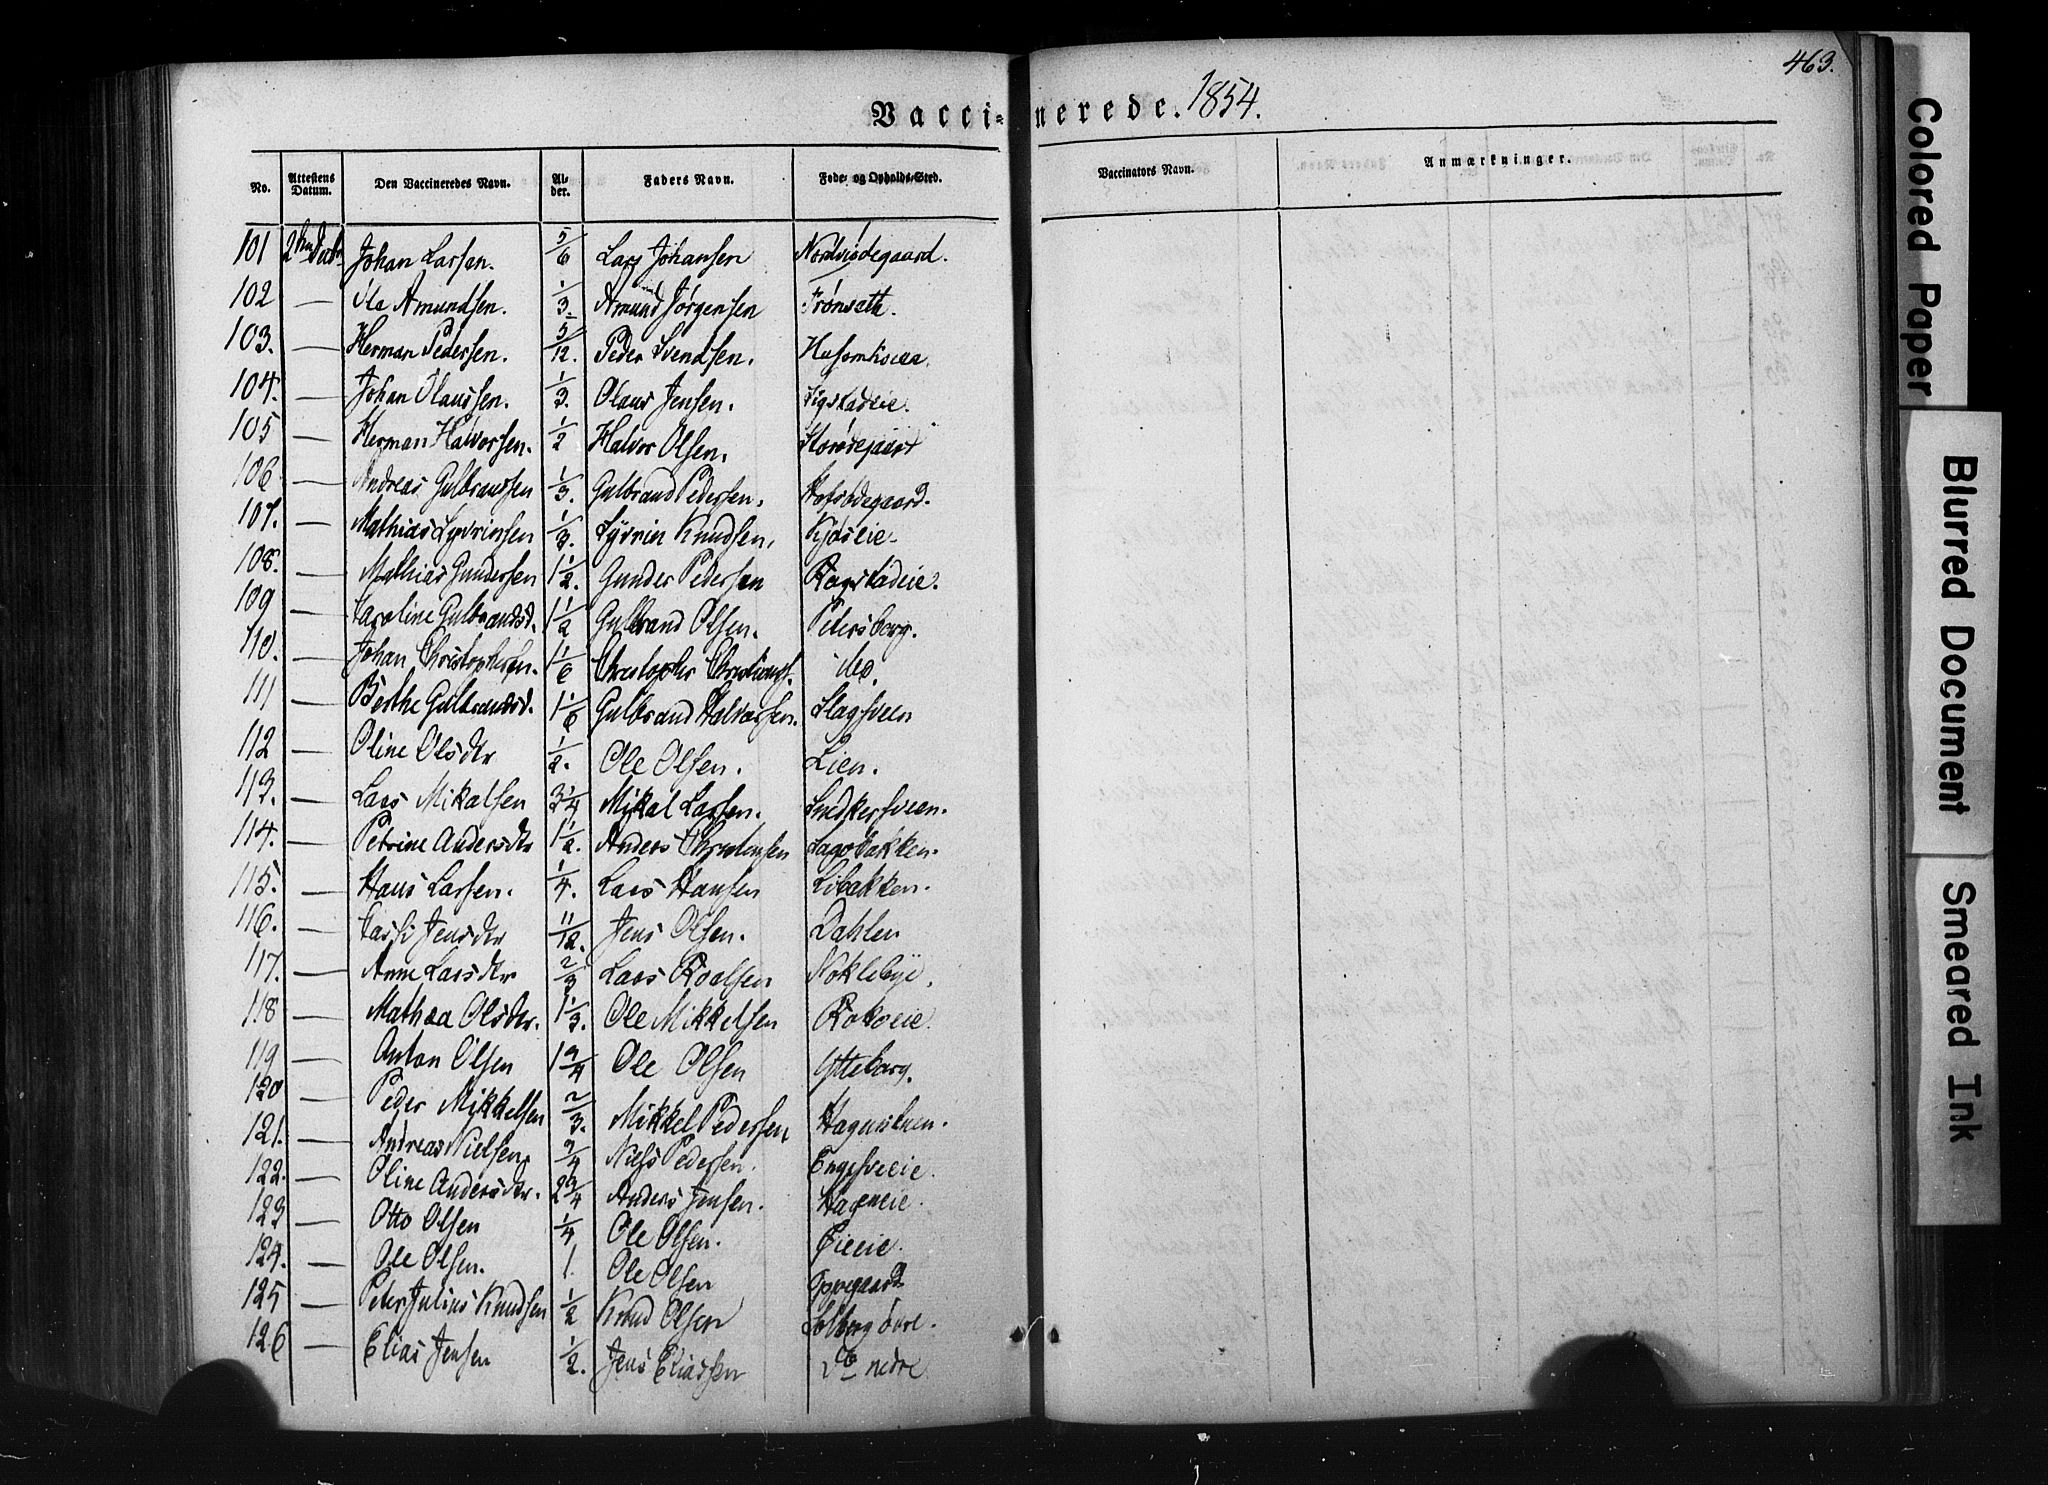 463.
Vaccinerede. 1854.
No. Attestens Datum. Den Vaccineredes Navn. Alder. Faders Navn. Føde- og Opholds-Sted. Vaccinators Navn. Anmærkninger.
101 2den Decbr Johan Larsen. 5/6 Lars Johansen Nordvisdegaard.
102 — Ole Amundsen. 1/3. Amund Jørgensen Frønsath.
103. — Herman Pedersen. 5/12. Peder Svendsen.
104. — Johan Olaussen. 1/3. Olaus Jensen. Sigstadeie.
105 — Herman Halvorsen. 1/2 Halvor Olsen.
106 — Andreas Gulbrandsen 1/3. Gulbrand Pedersen.
107. — Mathias Syvrinsen 1/3. Syvrin Knudsen. Kjøseie
108. — Mathias Gundersen 1 1/2. Gunder Pedersen Rogstadeie.
109 — Karoline Gulbrandsd. 1 1/2 Gulbrand Olsen. Petersborg.
110. — Johan Christophersen. 1 1/6 Christopher Christians. do.
111 — Berthe Gulbrandsd. 1 1/6 Gulbrand Halvorsen. Slagsveen
112 — Oline Olsdtr 1/2. Ole Olsen. Lien.
113. — Lars Mikalsen 3 1/4 Mikal Larsen. Snedkersveen.
114. — Petrine Andersdtr 1 1/2. Anders Christensen Lagobakken.
115. — Hans Larsen. 1/4. Lars Hansen Libakken.
116. — Jensdtr 11/12. Jens Olsen. Dahlen
117. — Anne Larsdtr 2/3 Lars Roalsen Noklebye.
118 — Mathea Olsdtr. 1 1/3. Ole Mikkelsen Rokoeie.
119 — Anton Olsen 1 3/4 Ole Olsen Ytteborg.
120 — Peder Mikkelsen 2/3. Mikkel Pedersen
121. — Andreas Nielsen. 3/4 Niels Pedersen. Engesveeie.
122. — Oline Andersdtr. 2 3/4 Anders Jensen. Hageneie.
123 — Otto Olsen 1/4 Ole Olsen. Øieeie.
124. — Ole Olsen. 1. Ole Olsen Oppegaard
125 — Peter Julius Knudsen 1/2 Knud Olsen Solberg øvre.
126 — Elias Jensen 1/2. Jens Eliassen do nedre
Colored Paper
Blurred Document
Smeared Ink